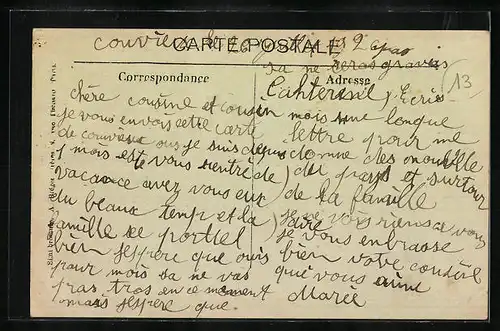 couvieux le
CARTE POSTALE
sa ne seras graves
Correspondance
Adresse
13
chère cousine et cousin
je vous envois cette carte
de couvieux ous je suis depuis
1 mois este vous rentré de
vacance avez vous eux
du beaux temp et la
famille se portiel
bien jespere que ouis
pour mois sa ne vas
pras tros en ce moment
mais jespère que
Cantenil, Ecris
mois une longue
lettre pour me
donne des nouvelle
du pays et surtour
de la famille
Je ne vois riens a vous
dire je vous enbrasse
bien votre cousine
que vous aime
Maree